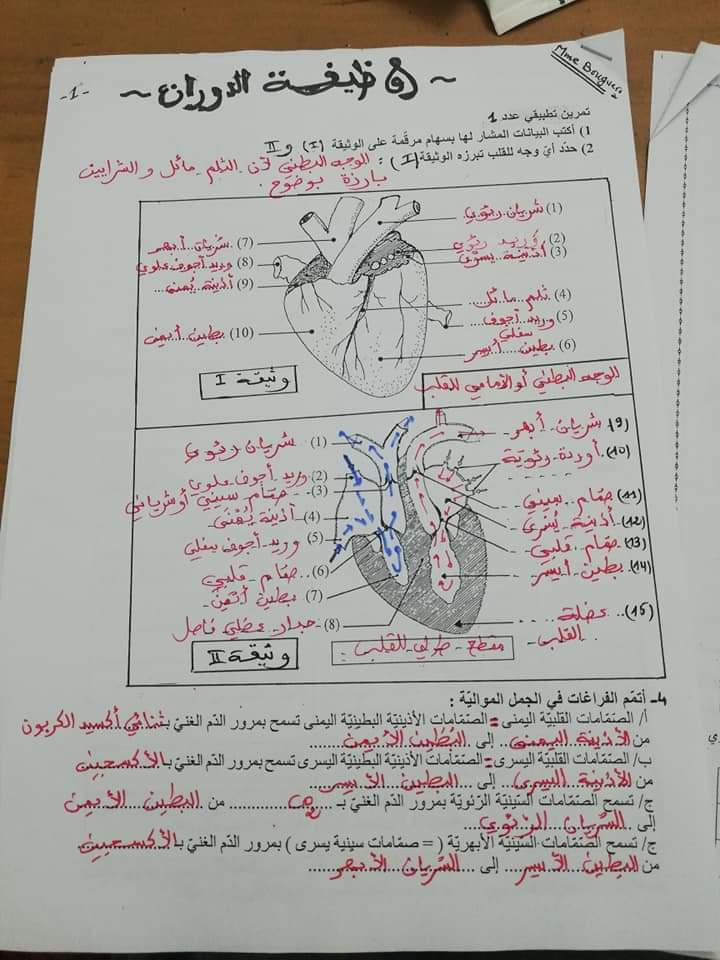 Mme Bougueu
-1-
~ وظيفة الدوران ~
تمرين تطبيقي عدد 1
1) أكتب البيانات المشار لها بسهام مرقّمة على الوثيقة (I) و II
2) حدّد أيّ وجه للقلب تبرزه الوثيقة (I) : الوجه البطني لأن الثلم مائل والشرايين
بارزة بوضوح.
(1) شريان رئوي
(2) وريد رئوي
(3) أذينة يسرى
(4) ثلم مائل
(5) وريد أجوف سفلي
(6) بطين أيسر
(7) شريان أبهر
(8) وريد أجوف علوي
(9) أذينة يمنى
(10) بطين أيمن
وثيقة I
الوجه البطني أو الأمامي للقلب
(1) شريان رئوي
(2) وريد أجوف علوي
(3) صمّام سيني أو شرياني
(4) أذينة يمنى
(5) وريد أجوف سفلي
(6) صمّام قلبي
(7) بطين أيمن
(8) جدار عضلي فاصل
(9) شريان أبهر
(10) أوردة رئوية
(11) صمّام سيني
(12) أذينة يسرى
(13) صمّام قلبي
(14) بطين أيسر
(15) عضلة القلب
وثيقة II
مقطع طولي للقلب
4- أتمّم الفراغات في الجمل الموالية :
أ/ الصمّامات القلبيّة اليمنى = الصمّامات الأذينيّة البطينيّة اليمنى تسمح بمرور الدّم الغنيّ بـ ثنائي أكسيد الكربون
من الأذينة اليمنى إلى البطين الأيمن
ب/ الصمّامات القلبيّة اليسرى = الصمّامات الأذينيّة البطينيّة اليسرى تسمح بمرور الدّم الغنيّ بـ الأكسجين
من الأذينة اليسرى إلى البطين الأيسر
ج/ تسمح الصمّامات السّينيّة الرّئويّة بمرور الدّم الغنيّ بـ CO2 من البطين الأيمن
إلى الشريان الرئوي
ج/ تسمح الصمّامات السّينيّة الأبهريّة ( = صمّامات سينية يسرى ) بمرور الدّم الغنيّ بـ الأكسجين
من البطين الأيسر إلى الشريان الأبهر